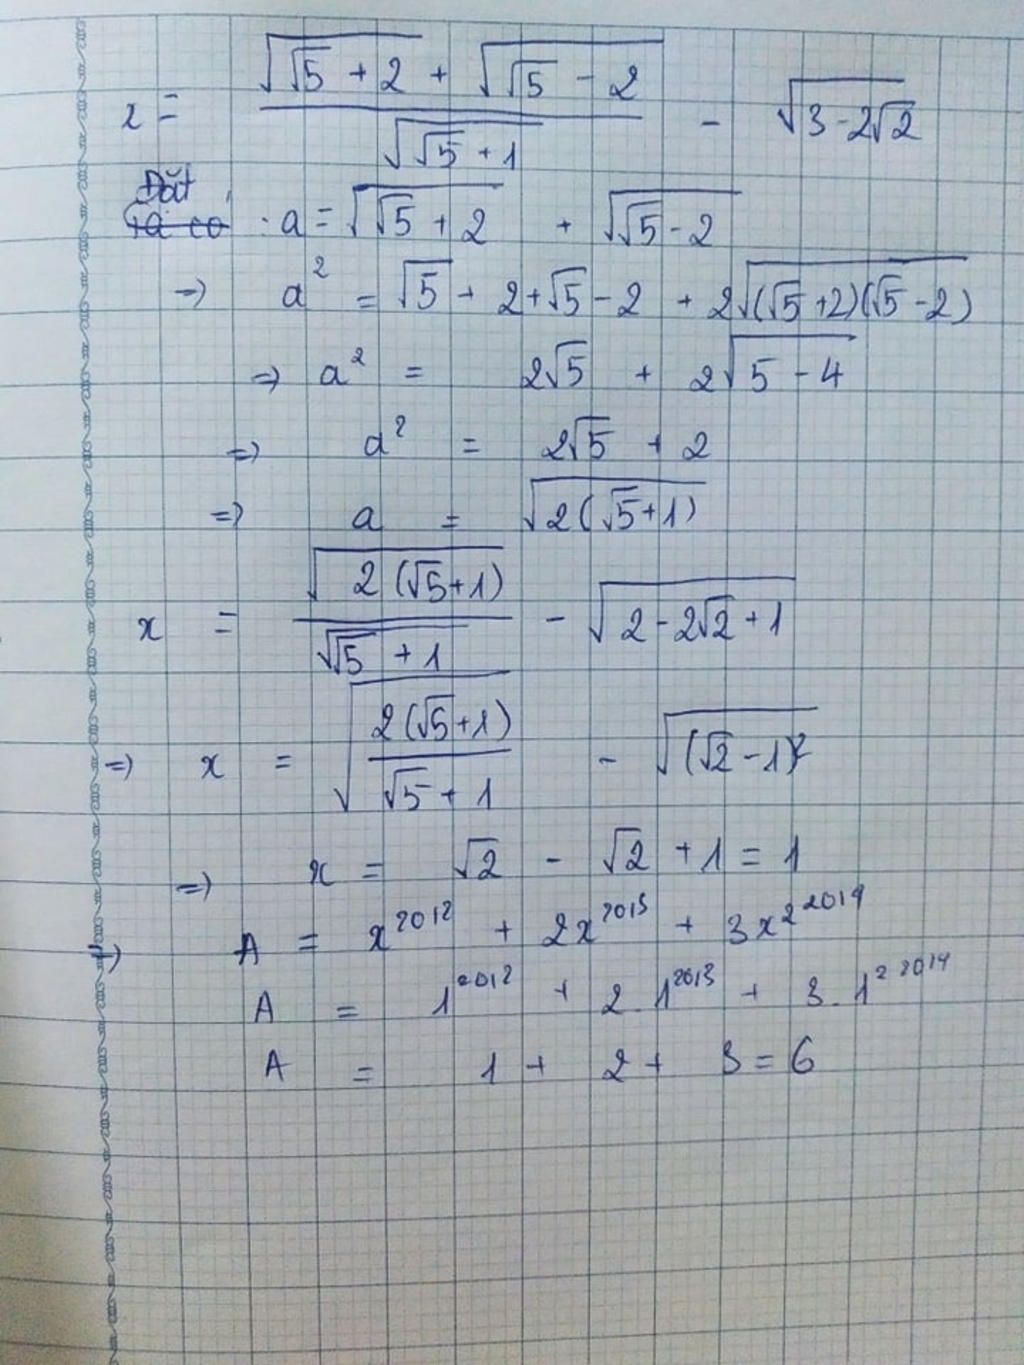 x = (√(√5 + 2) + √(√5 - 2)) / √(√5 + 1) - √(3 - 2√2)
Đặt
ta có : a = √(√5 + 2) + √(√5 - 2)
=> a² = √5 + 2 + √5 - 2 + 2√((√5 + 2)(√5 - 2))
=> a² = 2√5 + 2√(5 - 4)
=> a² = 2√5 + 2
=> a = √(2(√5 + 1))
x = √(2(√5 + 1)) / √(√5 + 1) - √(2 - 2√2 + 1)
=> x = √(2(√5 + 1) / (√5 + 1)) - √((√2 - 1)²)
=> x = √2 - √2 + 1 = 1
=> A = x²⁰¹² + 2x²⁰¹³ + 3x² ²⁰¹⁴
A = 1²⁰¹² + 2 . 1²⁰¹³ + 3 . 1² ²⁰¹⁴
A = 1 + 2 + 3 = 6